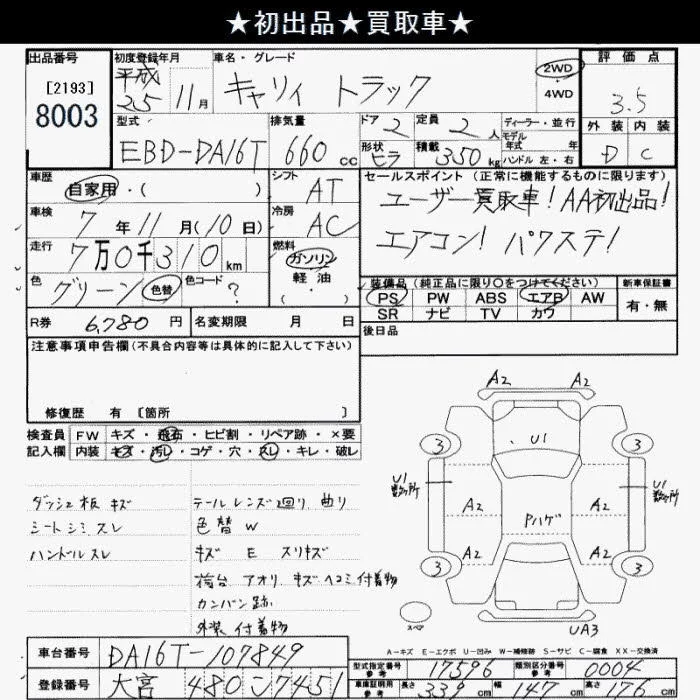 ★初出品★買取車★
出品番号 初度登録年月 車名・グレード 2WD 評価点
[2193] 平成 キャリィ トラック ・
8003 25 11月 4WD 3.5
型式 排気量 ドア 定員 ディーラー・並行 外装 内装
2 2人 モデル
EBD-DA16T 660cc 形状 積載 年式 年 D C
バラ 350kg ハンドル 左・右
車歴 シフト セールスポイント(正常に機能するものに限ります)
自家用・( ) AT ユーザー買取車!AA初出品!
車検 冷房
7年11月(10日) AC エアコン! パワステ!
走行 燃料
7万0千310km ガソリン
色 色コード 軽油 装備品(純正品に限り○をつけてください) 新車保証書
グリーン 色替 ? (・) PS PW ABS エアB AW 有・無
R券 6,780円 名変期限 月 日 SR ナビ TV カワ
注意事項申告欄(不具合内容等は具体的に記入して下さい) 後日品
修復歴 有 [箇所 ]
検査員 FW キズ・飛石・ヒビ割・リペア跡・×要
記入欄 内装 キズ・汚レ・コゲ・穴・スレ・キレ・破レ
ダッシュ板 キズ テールレンズ廻り 曲り
シート シミ スレ 色替 W
ハンドル スレ キズ E スリキズ
荷台 アオリ キズ ヘコミ 付着物
カンバン跡
外装 付着物
A2 A2
3 U1 3
U1 数ヶ所 U1 数ヶ所
A2 Pハゲ A2
A2 A2
3 3
スペア UA3
A-キズ E-エクボ U-凹み W-補修跡 S-サビ C-腐食 XX-交換済
車台番号 DA16T-107849
型式指定番号 参考 17596 類別区分番号 参考 0004
登録番号 大宮 480 い 7451
車庫証明用 参考 長さ 339cm 幅 147cm 高さ 176cm